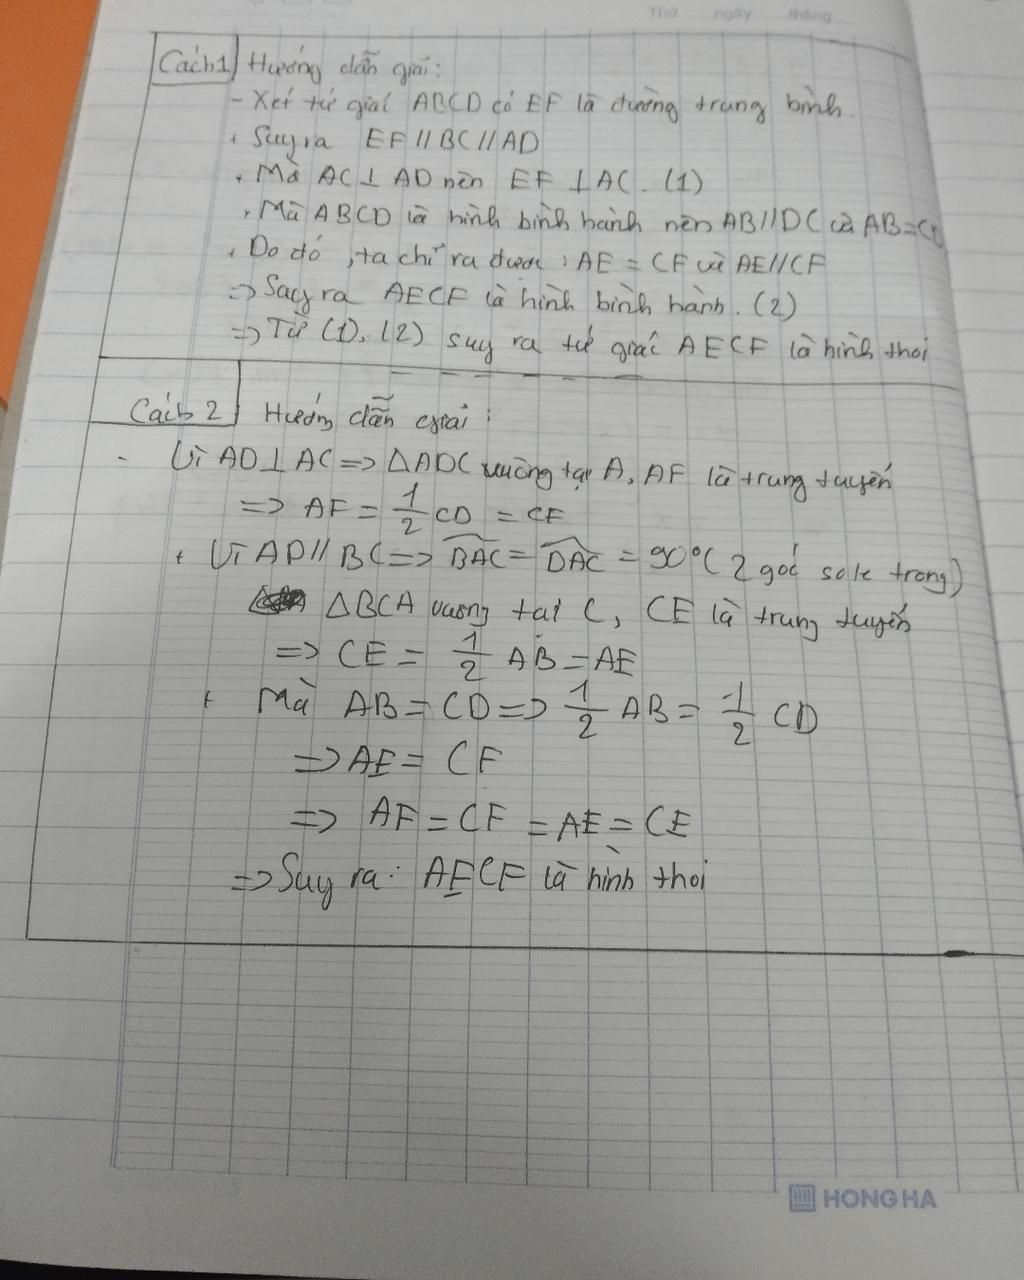 Thứ ngày tháng
Cách1 Hướng dẫn giải:
- Xét tứ giác ABCD có EF là đường trung bình.
+ Suy ra EF // BC // AD
+ Mà AC ⊥ AD nên EF ⊥ AC. (1)
+ Mà ABCD là hình bình hành nên AB // DC và AB = CD
+ Do đó, ta chỉ ra được: AE = CF và AE // CF
=> Suy ra AECF là hình bình hành. (2)
=> Từ (1), (2) suy ra tứ giác AECF là hình thoi
Cách 2 Hướng dẫn giải:
- Vì AD ⊥ AC => ΔADC vuông tại A, AF là trung tuyến
=> AF = 1/2 CD = CF
+ Vì AD // BC => BAC = DAC = 90° (2 góc sole trong)
ΔBCA vuông tại C, CE là trung tuyến
=> CE = 1/2 AB = AE
+ Mà AB = CD => 1/2 AB = 1/2 CD
=> AE = CF
=> AF = CF = AE = CE
=> Suy ra: AECF là hình thoi
HONG HA